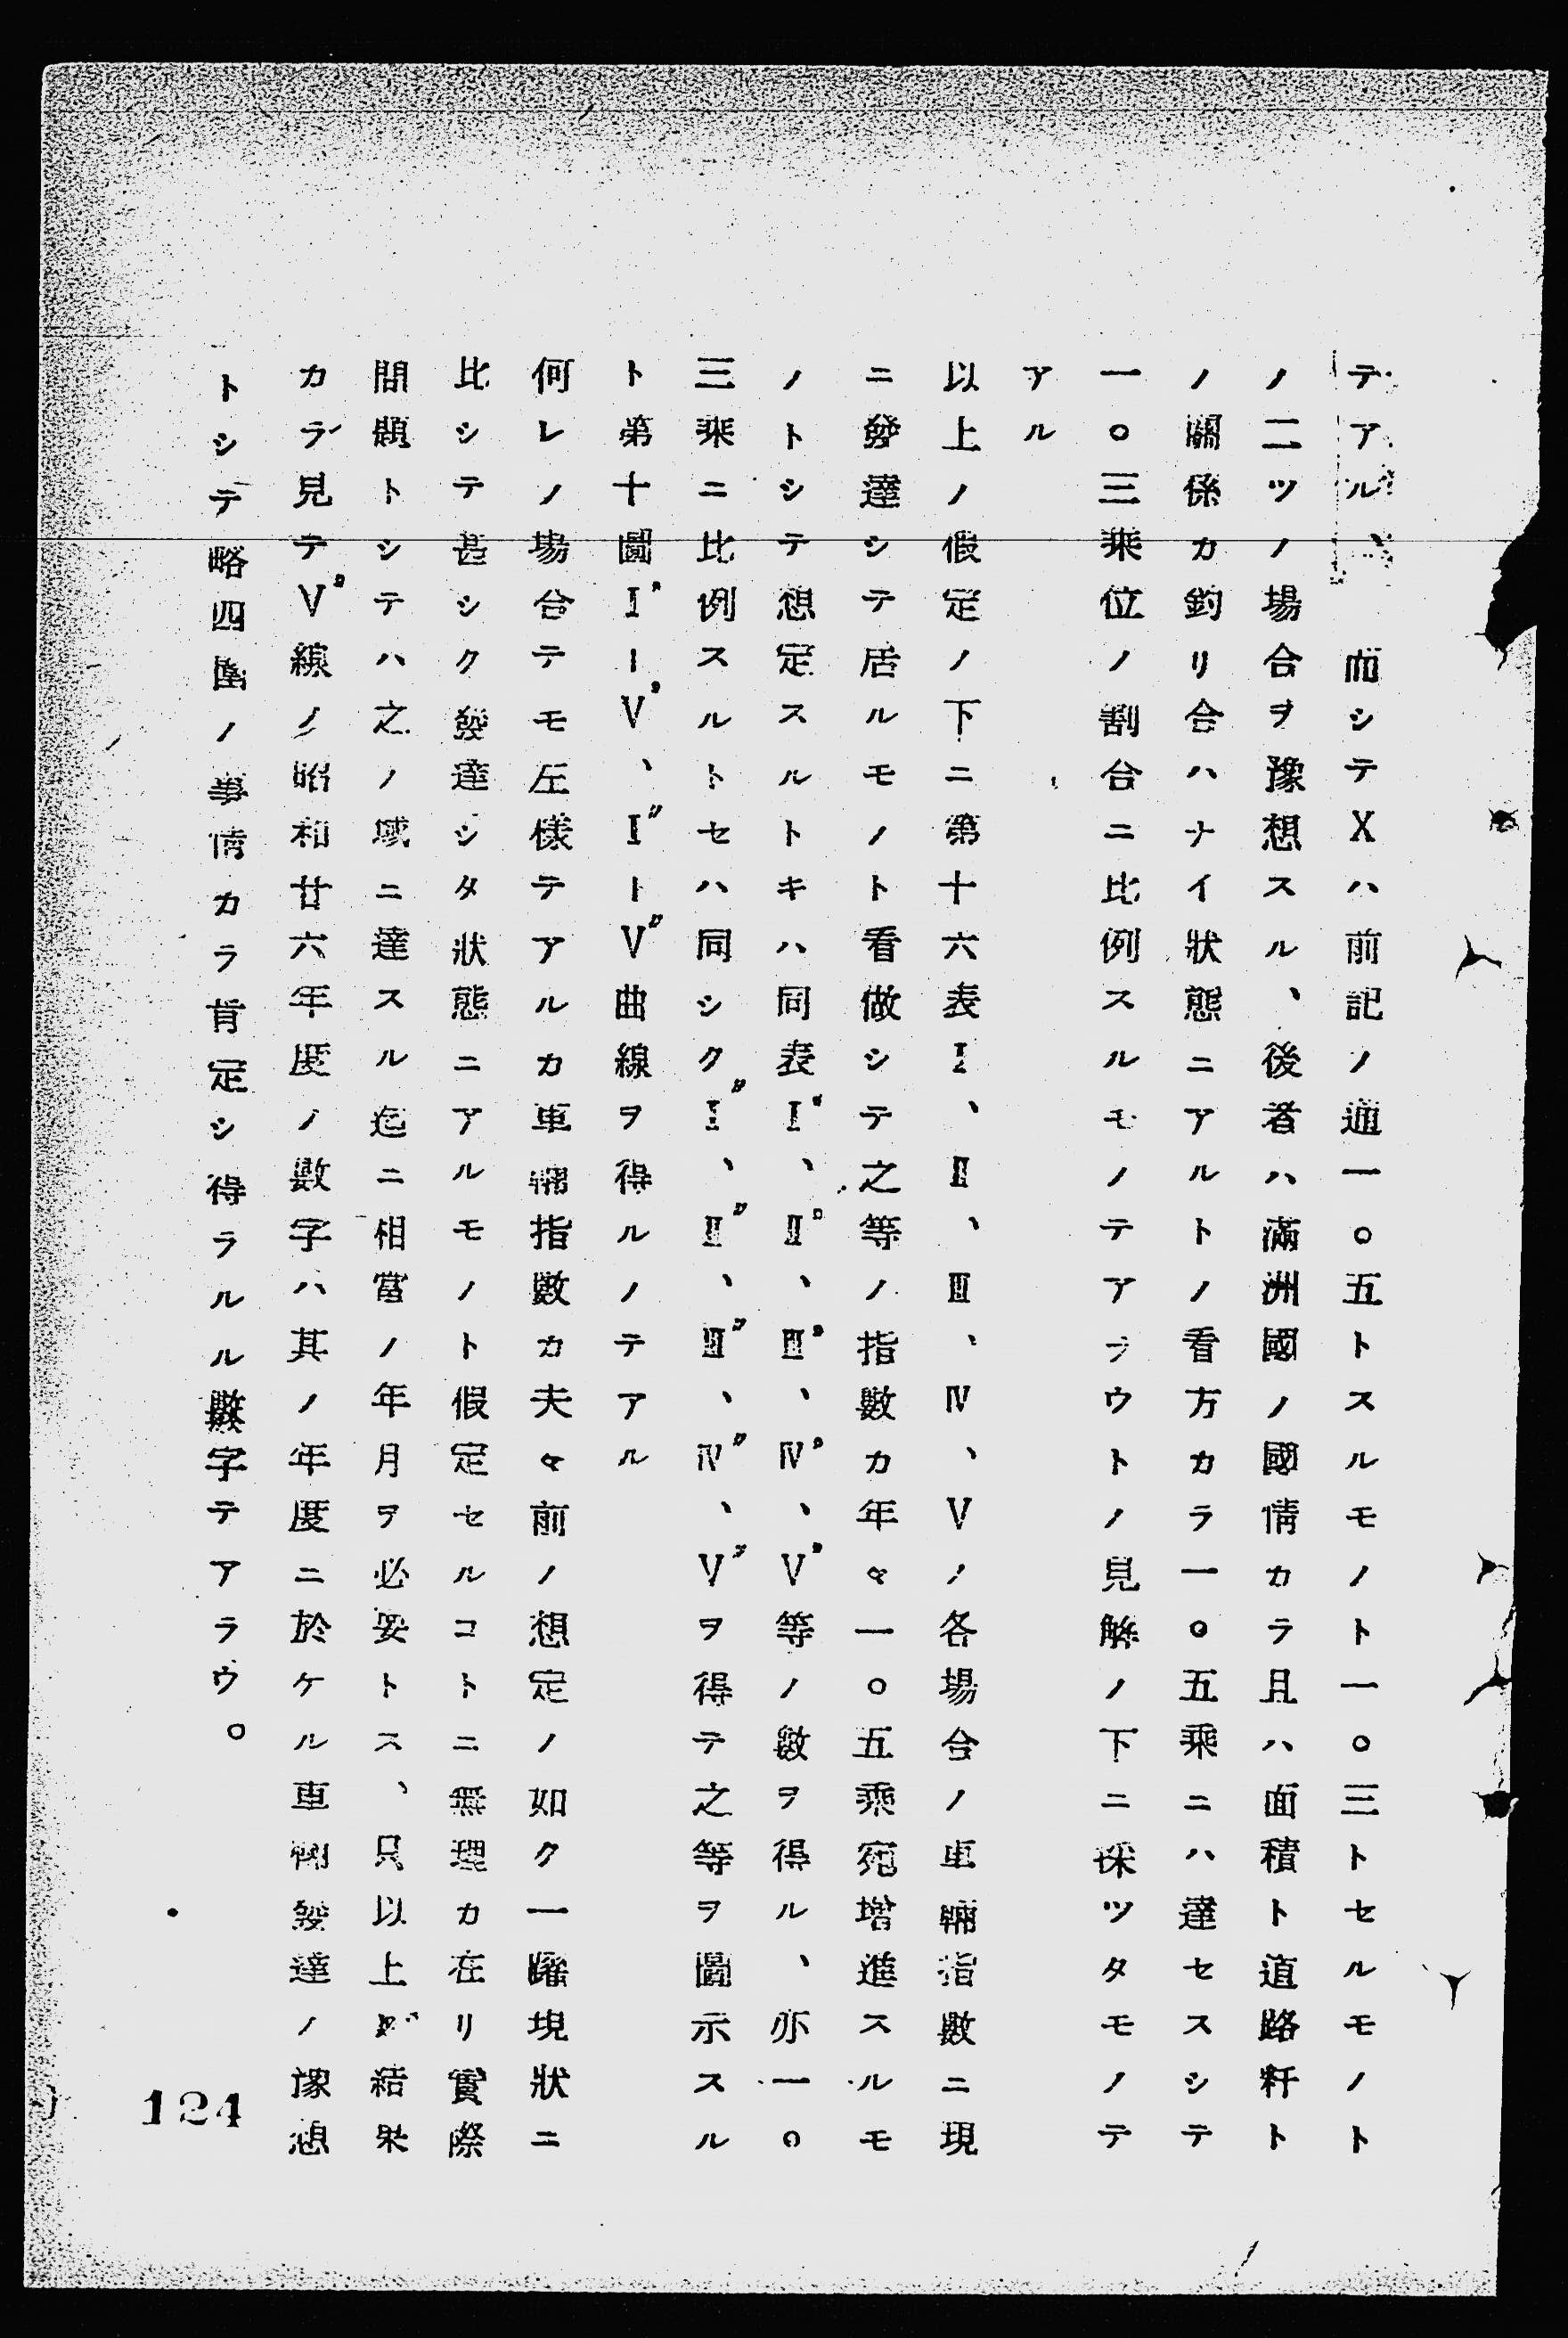 テアル、而シテXハ前記ノ通一〇五トスルモノト一〇三トセルモノト
ノ二ツノ場合ヲ豫想スル、後者ハ滿洲國ノ國情カラ且ハ面積ト道路粁ト
ノ關係カ釣リ合ハナイ狀態ニアルトノ看方カラ一〇五乘ニハ達セスシテ
一〇三乘位ノ割合ニ比例スルモノテアラウトノ見解ノ下ニ採ツタモノテ
アル
以上ノ假定ノ下ニ第十六表I、II、III、IV、Vノ各場合ノ車輛指數ニ現
ニ發達シテ居ルモノト看做シテ之等ノ指數カ年々一〇五乘宛增進スルモ
ノトシテ想定スルトキハ同表I'、II'、III'、IV'、V'等ノ數ヲ得ル、亦一〇
三乘ニ比例スルトセハ同シクI"、II"、III"、IV"、V"ヲ得テ之等ヲ圖示スル
ト第十圖I'ーV'、I"トV"曲線ヲ得ルノテアル
何レノ場合テモ左樣テアルカ車輛指數カ夫々前ノ想定ノ如ク一躍現狀ニ
比シテ甚シク發達シタ狀態ニアルモノト假定セルコトニ無理カ在リ實際
問題トシテハ之ノ域ニ達スル迄ニ相當ノ年月ヲ必要トス、只以上ノ結果
カラ見テV'線ノ昭和廿六年度ノ數字ハ其ノ年度ニ於ケル車輛發達ノ豫想
トシテ略四圍ノ事情カラ肯定シ得ラルル數字テアラウ。
124